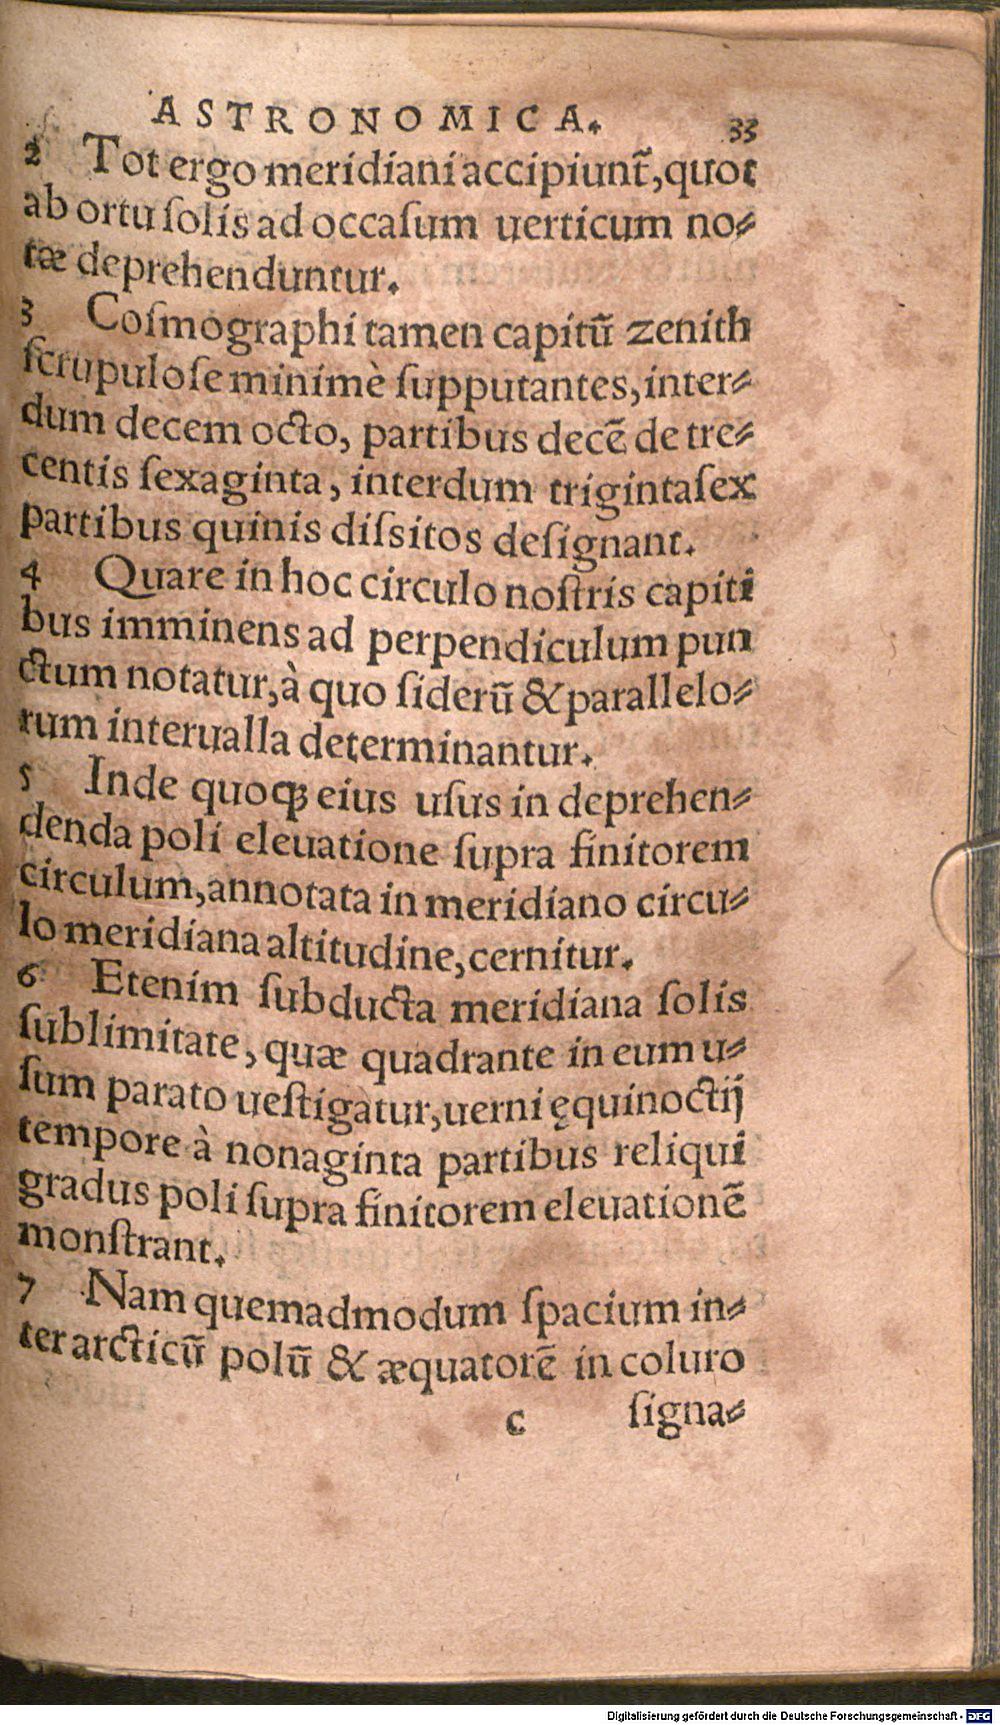 ASTRONOMICA. 33
2 Tot ergo meridiani accipiunt̃, quot
ab ortu ſolis ad occaſum uerticum no⸗
tæ deprehenduntur.
3 Coſmographi tamen capitũ zenith
ſcrupuloſe minimè ſupputantes, inter⸗
dum decem octo, partibus decẽ de tre⸗
centis ſexaginta, interdum trigintaſex
partibus quinis diſsitos deſignant.
4 Quare in hoc circulo noſtris capiti
bus imminens ad perpendiculum pun
ctum notatur, à quo ſiderũ & parallelo⸗
rum interualla determinantur.
5 Inde quoqꝫ eius uſus in deprehen⸗
denda poli eleuatione ſupra finitorem
circulum, annotata in meridiano circu⸗
lo meridiana altitudine, cernitur.
6 Etenim ſubducta meridiana ſolis
ſublimitate, quæ quadrante in eum u⸗
ſum parato ueſtigatur, uerni ęquinoctij
tempore à nonaginta partibus reliqui
gradus poli ſupra finitorem eleuationẽ
monſtrant.
7 Nam quemadmodum ſpacium in⸗
ter arcticũ polũ & æquatorẽ in coluro
c ſigna⸗
Digitalisierung gefördert durch die Deutsche Forschungsgemeinschaft - DFG